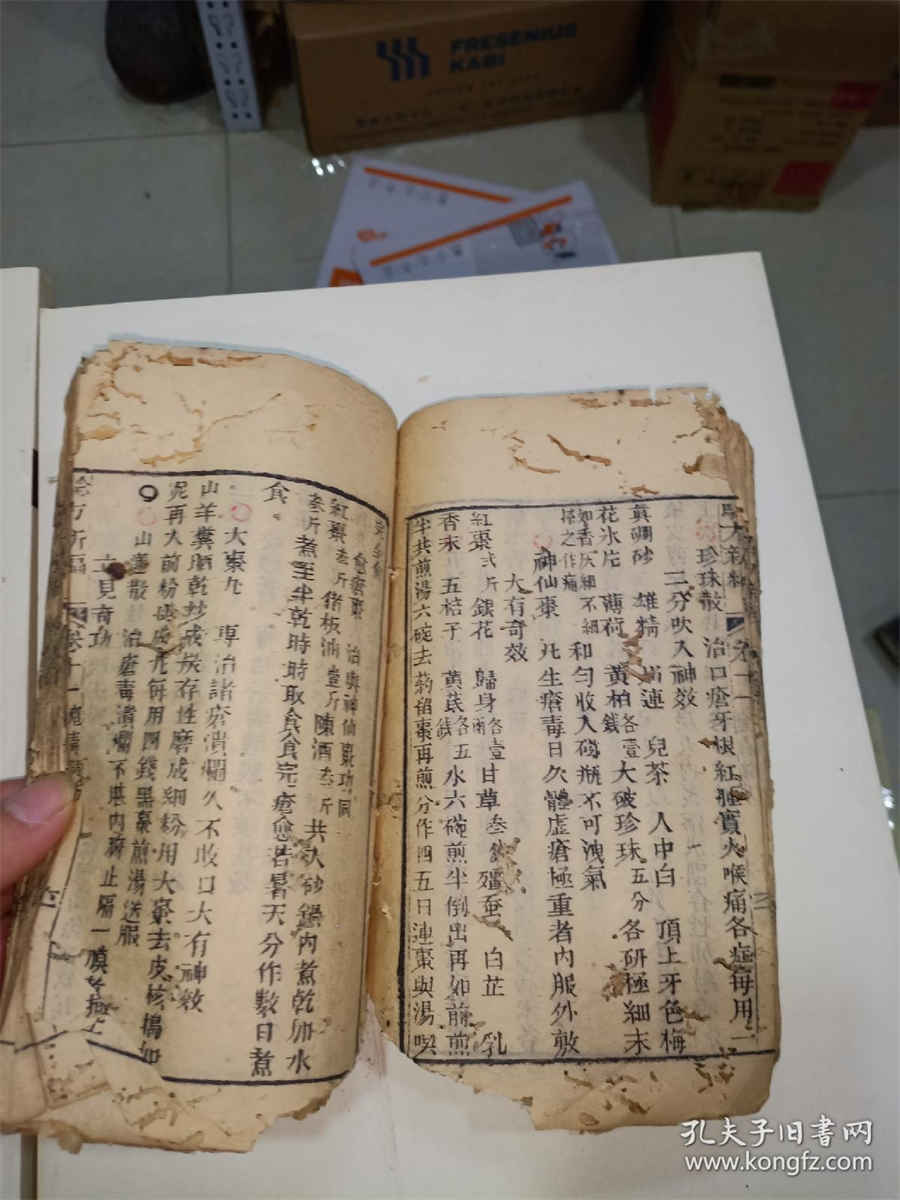 FRESENIUS
KABI
珍珠散 治口瘡牙根紅腫實火喉痛各症每用一
二分吹入神效
真硼砂 雄精 川連 兒茶 人中白 頂上牙色梅
花氷片 薄荷 黃柏各壹錢 大破珍珠五分 各研極細末
如香灰細不細搽之作痛 和勻收入磁瓶不可洩氣
神仙棗 凡生瘡毒日久體虛瘡極重者內服外敷
大有奇效
紅棗弍斤 銀花 歸身各壹兩 甘草叁錢 殭蚕 白芷 乳
香末 五桔子 黃芪各五錢 水六碗煎半倒出再如前煎
半共煎湯六碗去葯留棗再煎分作四五日連棗與湯喫
完全愈
愈瘡棗 治與神仙棗功同
紅棗叁斤 猪板油壹斤 陳酒叁斤 共入砂鍋內煮乾加水
叁斤煮至半乾時時取食食完瘡愈若暑天分作數日煮
食
大棗丸 專治諸瘡潰爛久不收口大有神效
山羊糞晒乾炒成炭存性磨成細粉用大棗去皮核搗如
泥再入前粉搗成丸每用四錢黑棗煎湯送服
山蓮散 治瘡毒潰爛不堪內臟止隔一膜
立見奇功
驗方新編 卷十一
孔夫子旧書网
www.kongfz.com